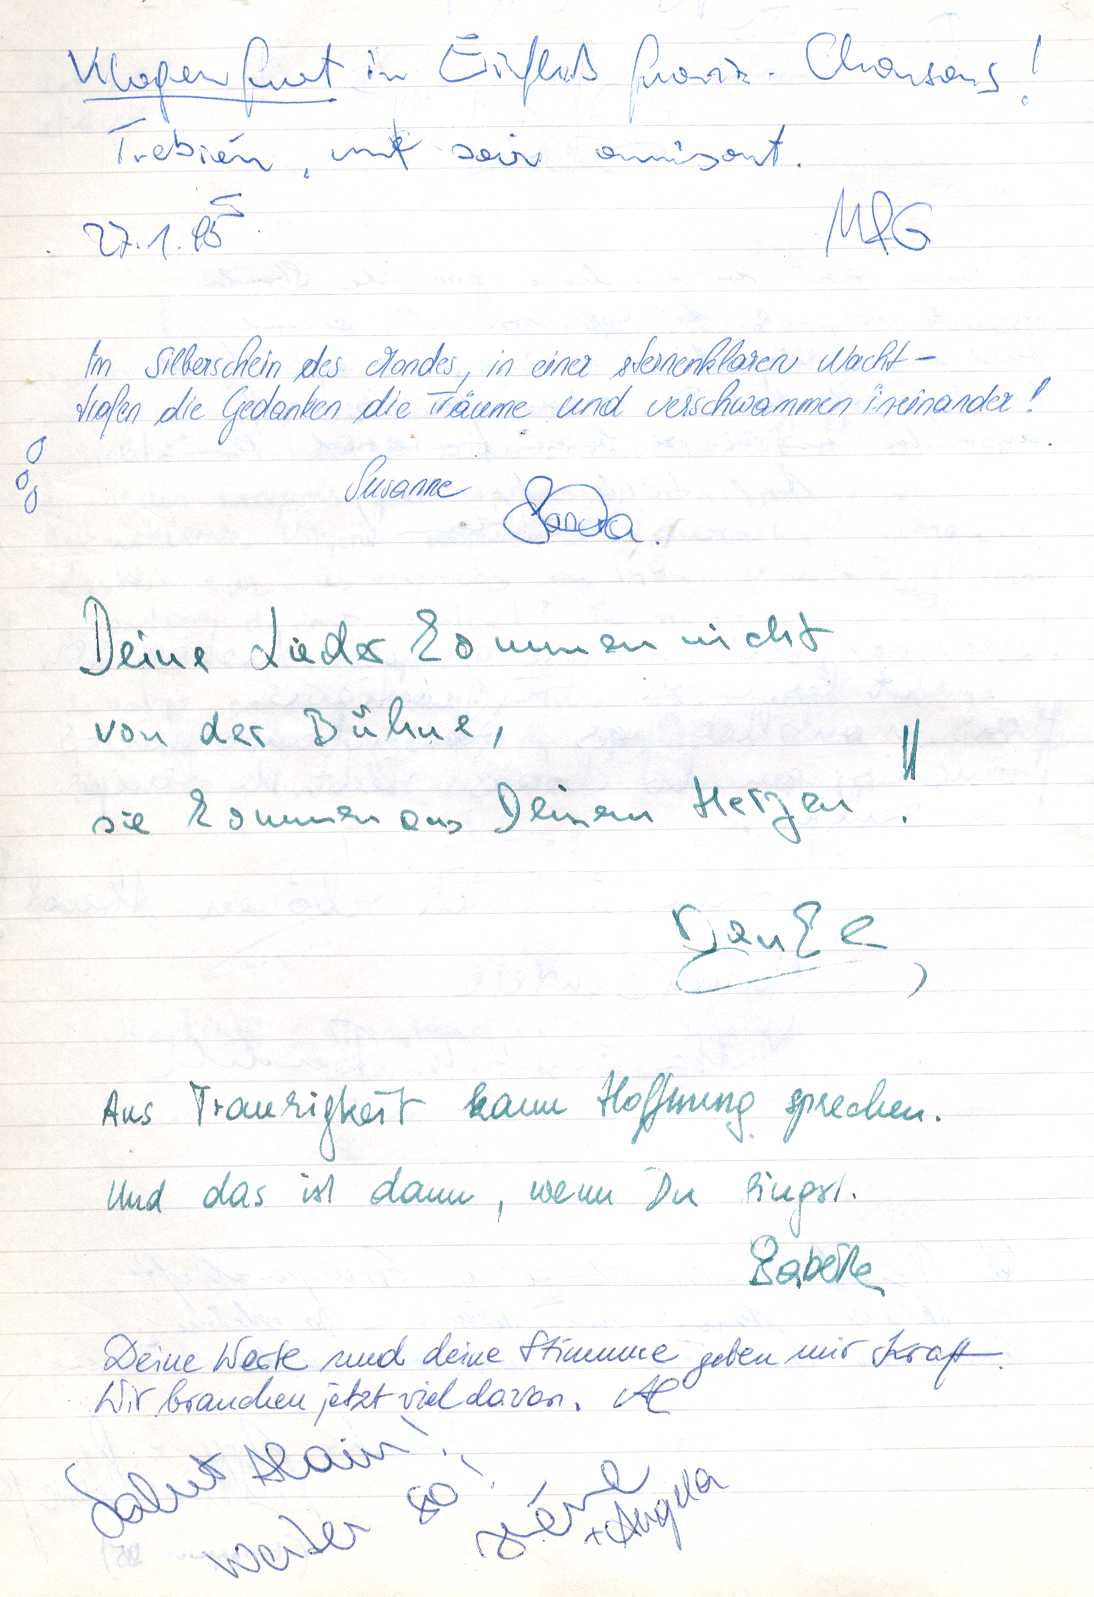 Klagenfurt in Einfluß franz. Chansons!
Trebién, und soir amüsant.
27.1.95
Im Silberschein des Mondes, in einer sternenklaren Nacht –
trafen die Gedanken die Träume und verschwammen ineinander!
Susanne
Deine Lieder kommen nicht
von der Bühne,
sie kommen aus Deinem Herzen!!
Danke,
Aus Traurigkeit kann Hoffnung sprechen.
Und das ist dann, wenn Du singst.
Babette
Deine Worte und deine Stimme geben mir Kraft.
Wir brauchen jetzt viel davon.
Salut Alain!
weiter so!
+ Angela